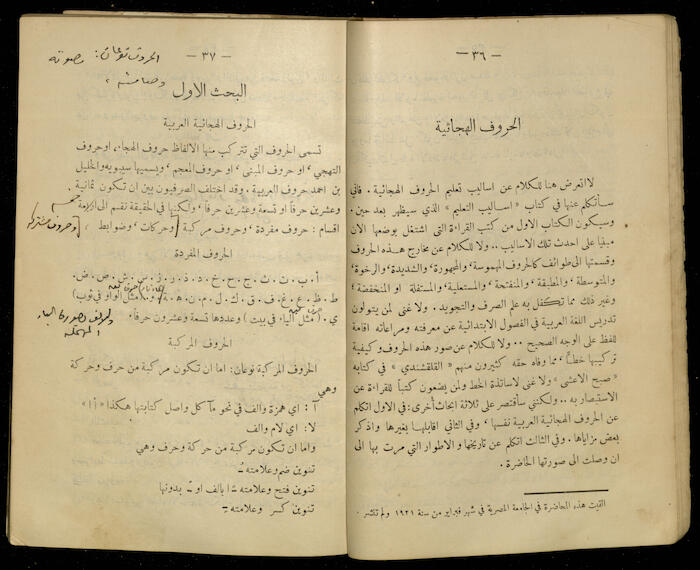 — ٣٦ —
الحروف الهجائية
لا اتعرض هنا للكلام عن اساليب تعليم الحروف الهجائية . فاني
سأتكلم عنها في كتاب « اساليب التعليم » الذي سيظهر بعد حين .
وسيكون الكتاب الاول من كتب القراءة التي اشتغل بوضعها الآن
مبنيا على احدث تلك الاساليب .. ولا للكلام عن مخارج هذه الحروف
وقسمتها الى طوائف كالحروف المهموسة ، والمجهورة ، والشديدة ، والرخوة ،
والمتوسطة ، والمطبقة ، والمنفتحة ، والمستعلية ، والمستفلة او المنخفضة ،
وغير ذلك مما تكفل به علم الصرف والتجويد . ولا غنى لمن يتولون
تدريس اللغة العربية في الفصول الابتدائية عن معرفته ومراعاته اقامة
للفظ على الوجه الصحيح .. ولا للكلام عن صور هذه الحروف وكيفية
تركيبها خطاً ، مما وفاه حقه كثيرون منهم « القلقشندي » في كتابه
« صبح الاعشى » ولا غنى لاساتذة الخط ولمن يضعون كتباً للقراءة عن
الاستبصار به .. ولكنني سأقتصر على ثلاثة ابحاث أخرى : في الاول اتكلم
عن الحروف الهجائية العربية نفسها ، وفي الثاني اقابلها بغيرها واذكر
بعض مزاياها . وفي الثالث اتكلم عن تاريخها والاطوار التي مرت بها الى
ان وصلت الى صورتها الحاضرة .
القيت هذه المحاضرة في الجامعة المصرية في شهر فبراير من سنة ١٩٢١ ولم تنشر .
— ٣٧ —
الحروف نوعان : مصوتة
وصامتة
البحث الاول
الحروف الهجائية العربية
تسمى الحروف التي تتركب منها الالفاظ حروف الهجاء ، او حروف
التهجي ، او حروف المبنى ، او حروف المعجم ، ويسميها سيبويه والخليل
بن احمد حروف العربية . وقد اختلف الصرفيون بين ان تكون ثمانية
وعشرين حرفاً او تسعة وعشرين حرفاً ، ولكنها في الحقيقة تقسم الى اربعة
خمسة
اقسام : حروف مفردة ، وحروف مركبة ، وحركات ، وضوابط ،
وحروف مشتركة
الحروف المفردة
أ . ب . ت . ث . ج . ح . خ . د . ذ . ر . ز . س . ش . ص . ض .
ط . ظ . ع . غ . ف . ق . ك . ل . م . ن . ه . و . ( مثل الواو في ثوب )
ي . ( مثل الياء في بيت ) وعددها تسعة وعشرون حرفاً .
الحروف المركبة
الحروف المركبة نوعان : اما ان تكون مركبة من حرف وحركة
وهي
آ : اي همزة والف في نحو مآكل واصل كتابتها هكذا « أا »
لا : اي لام والف
واما ان تكون مركبة من حركة وحرف وهي
تنوين ضم وعلامته ـٌ
تنوين فتح وعلامته ـً ا بالف او ـً بدونها
تنوين كسر وعلامته ـٍ